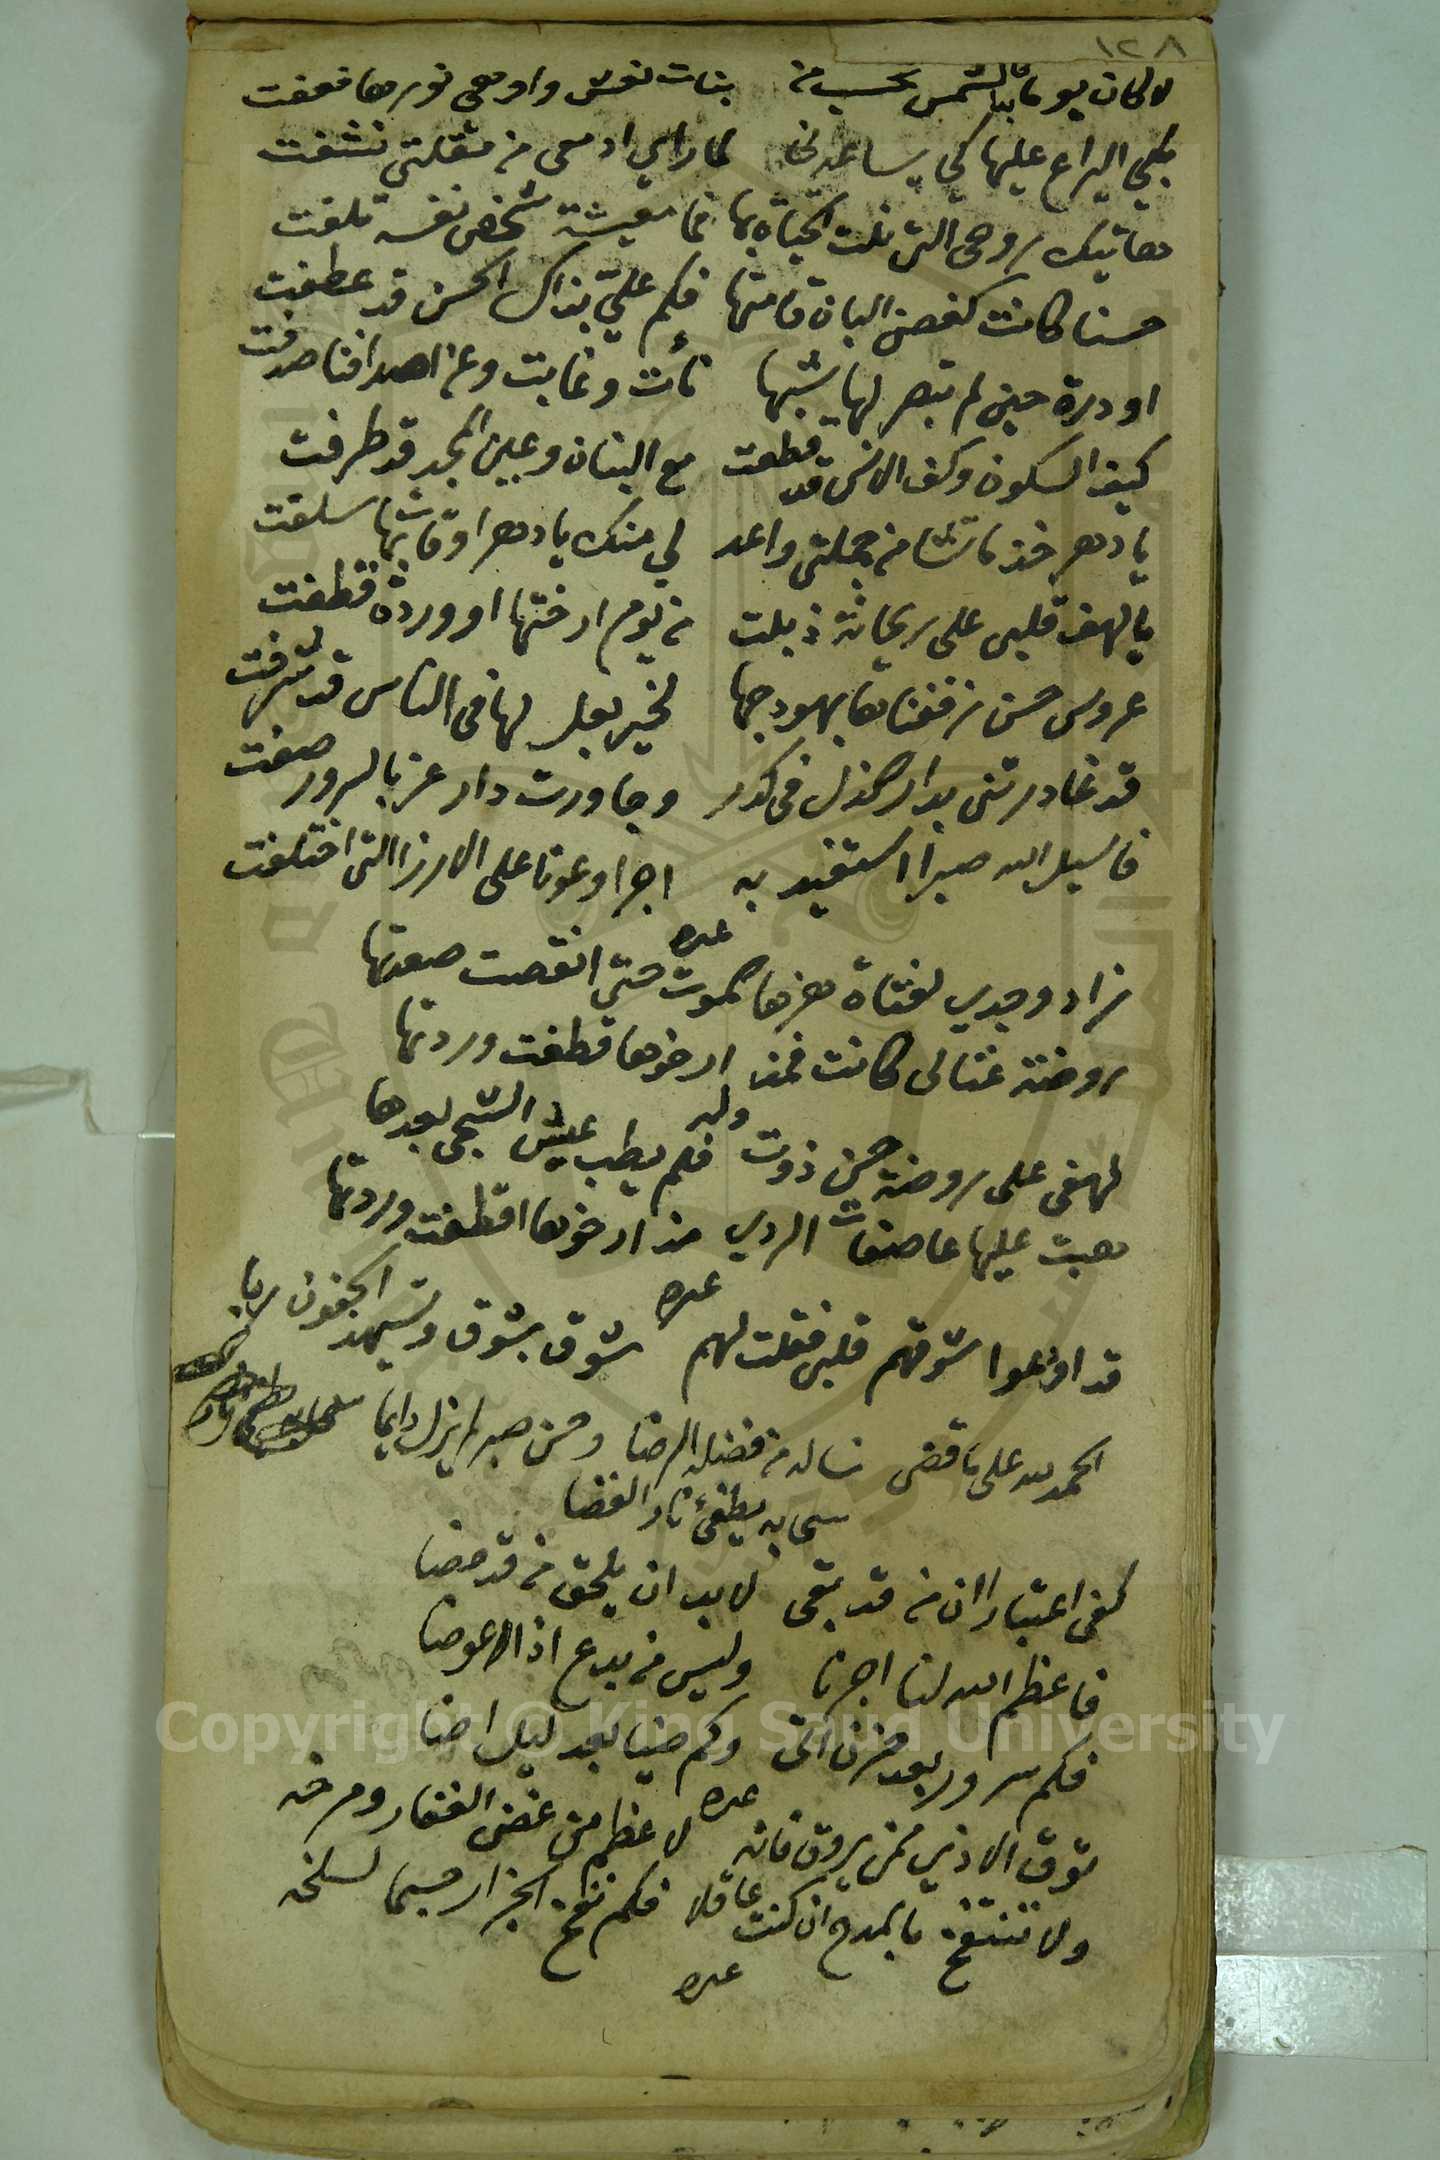 ١٢٨
لا كان يوما به الشمس تحسب من بنات نعش واوهى نورها فعفت
بكى اليراع عليها كي يساعدني لما راى ادمعى من مقلتي نشفت
هاتيك روحى التى نلت الحياة بها فما معيشة شخص نفسه تلفت
حسنا كانت كغصن البان قامتها فكم عليّ بذاك الحسن قد عطفت
او درة حين لم تبصر لها شبها نأت وغابت وعن اصدافنا صدفت
كيف السكون وكف الانس قد قطعت مع البنان وعين المجد قد طرفت
يا دهر خذ ما تشا من جملتي واعد لي منك يا دهر اوقاتا بها سلفت
يا لهف قلبى على ريحانة ذبلت من يوم ارختها او وردة قطفت
عروس حسن زففناها بهودجها لخير بعل لها فى الناس قد شرفت
قد غادرتنى بدار الذل فى كدر وجاورت دار عز بالسرور صفت
فاسيل الله صبرا استفيد به اجرا وعونا على الارزا التى اختلفت
غيره
زاد وجدي لفتاة هزها الموت حتى انقصت صعدتها
روضة غنا لى كانت فمذ ارخوها قطفت وردتها
وله
لهفى على روضة حسن ذوت فلم يطب عيش الشجى بعدها
هبت عليها عاصفات الردي مذ ارخوها اقطفت وردتها
غيره
قد اودعوا شوقهم قلبى فقلت لهم شوق بشوق وتسهد الجفون ربا
الحمد لله على ما قضى نساله من فضله الرضا وحسن صبر لم يزل دايما
سحابه يطفئ نار الغضا
كفى اعتبارا ان من قد بقى لا بد ان يلحق من قد مضا
فاعظم الله لنا اجرنا وليس من بدع اذا عوضا
فكم سرور بعد حزن اتى وكم ضيا بعد ليل اضا
غيره
توق الاذي ممن يروق فانه لاعظم من غض الفقار ومرخه
ولا تنتفخ بالمدح ان كنت عاقلا فكم نفخ الجزار جسما لسلخه
غيره
Copyright © King Saud University